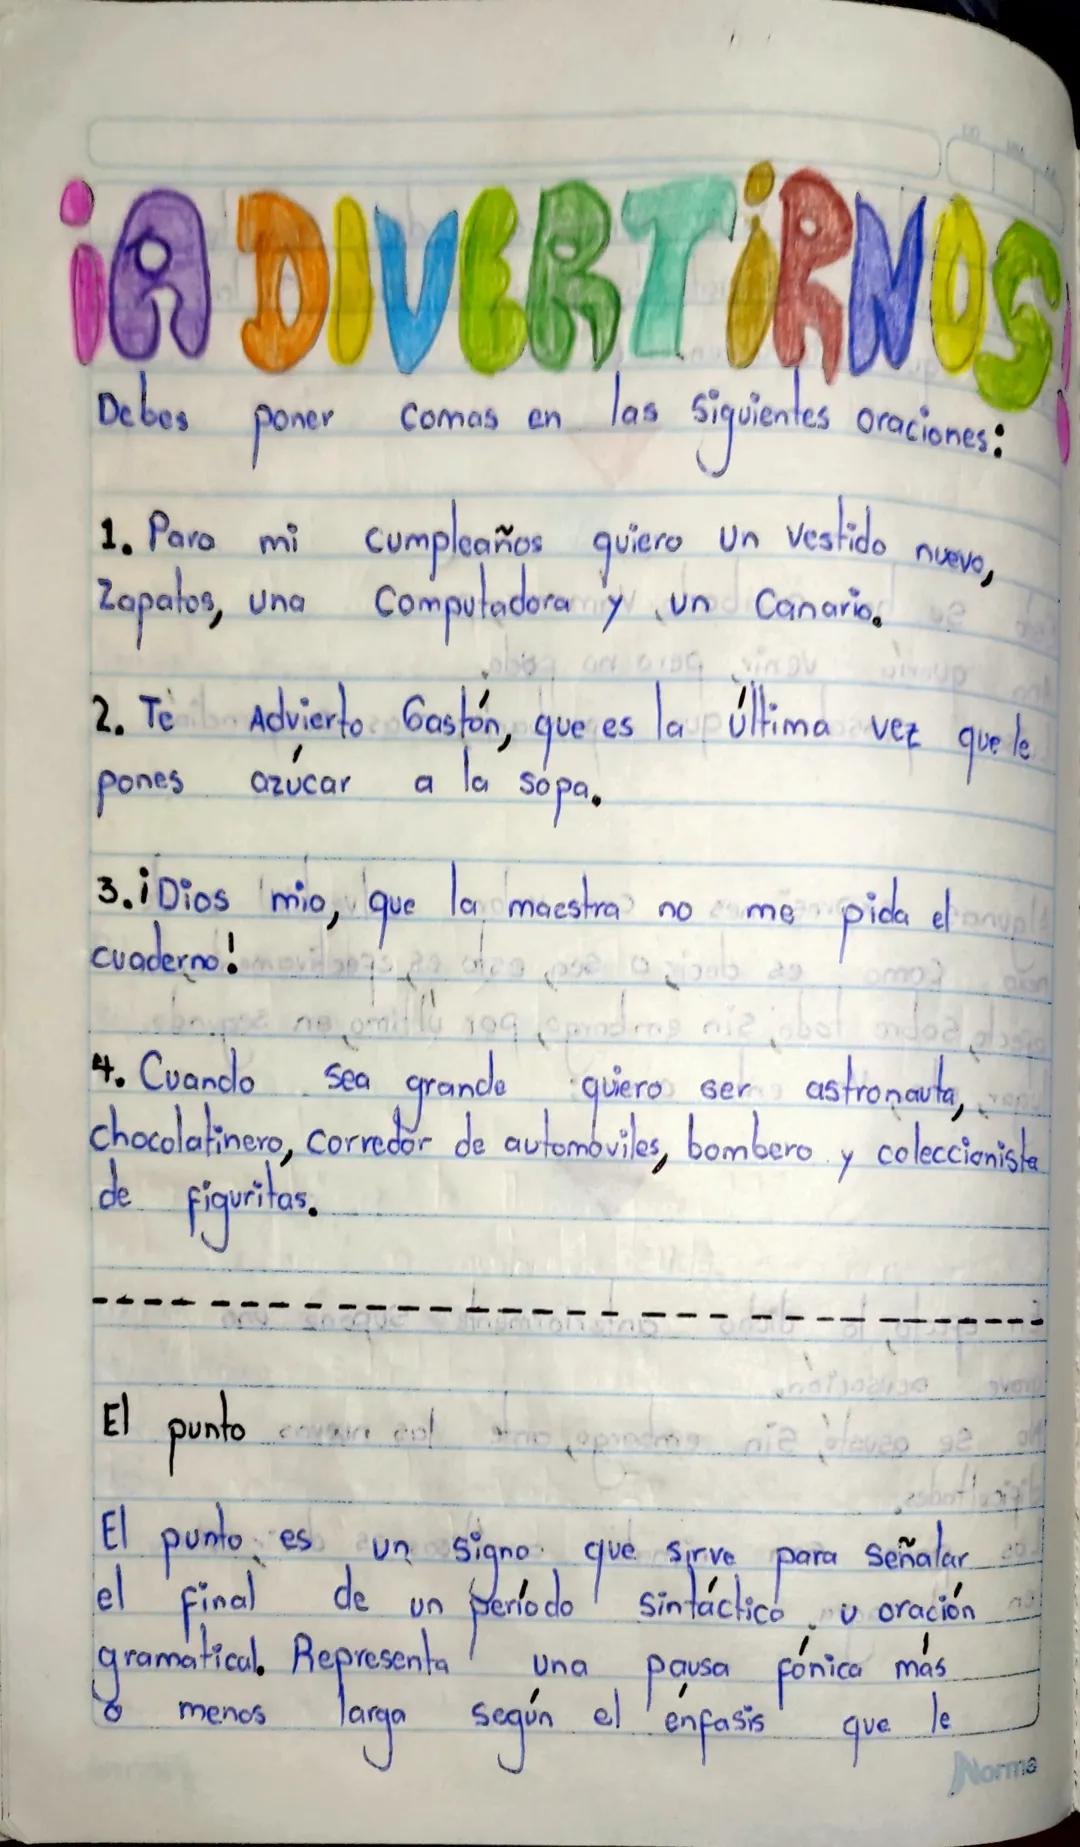 ¡A DIVERTIRNOS!
Debes poner comas en las siguientes oraciones:
1. Para mi cumpleaños quiero un vestido nuevo,
Zapatos, una Computadora y un Canario.
2. Te Advierto Gastón, que es la última vez que le
pones azúcar a la sopa.
3. ¡Dios mio, que la maestra no me pida el
cuaderno!
4. Cuando sea grande quiero ser astronauta,
chocolatinero, corredor de automóviles, bombero y coleccionista
de figuritas.
El punto
El punto es un signo que sirve para señalar
el final de un período sintáctico u oración
gramatical. Representa una pausa fónica más
o menos larga según el énfasis que le
Norma